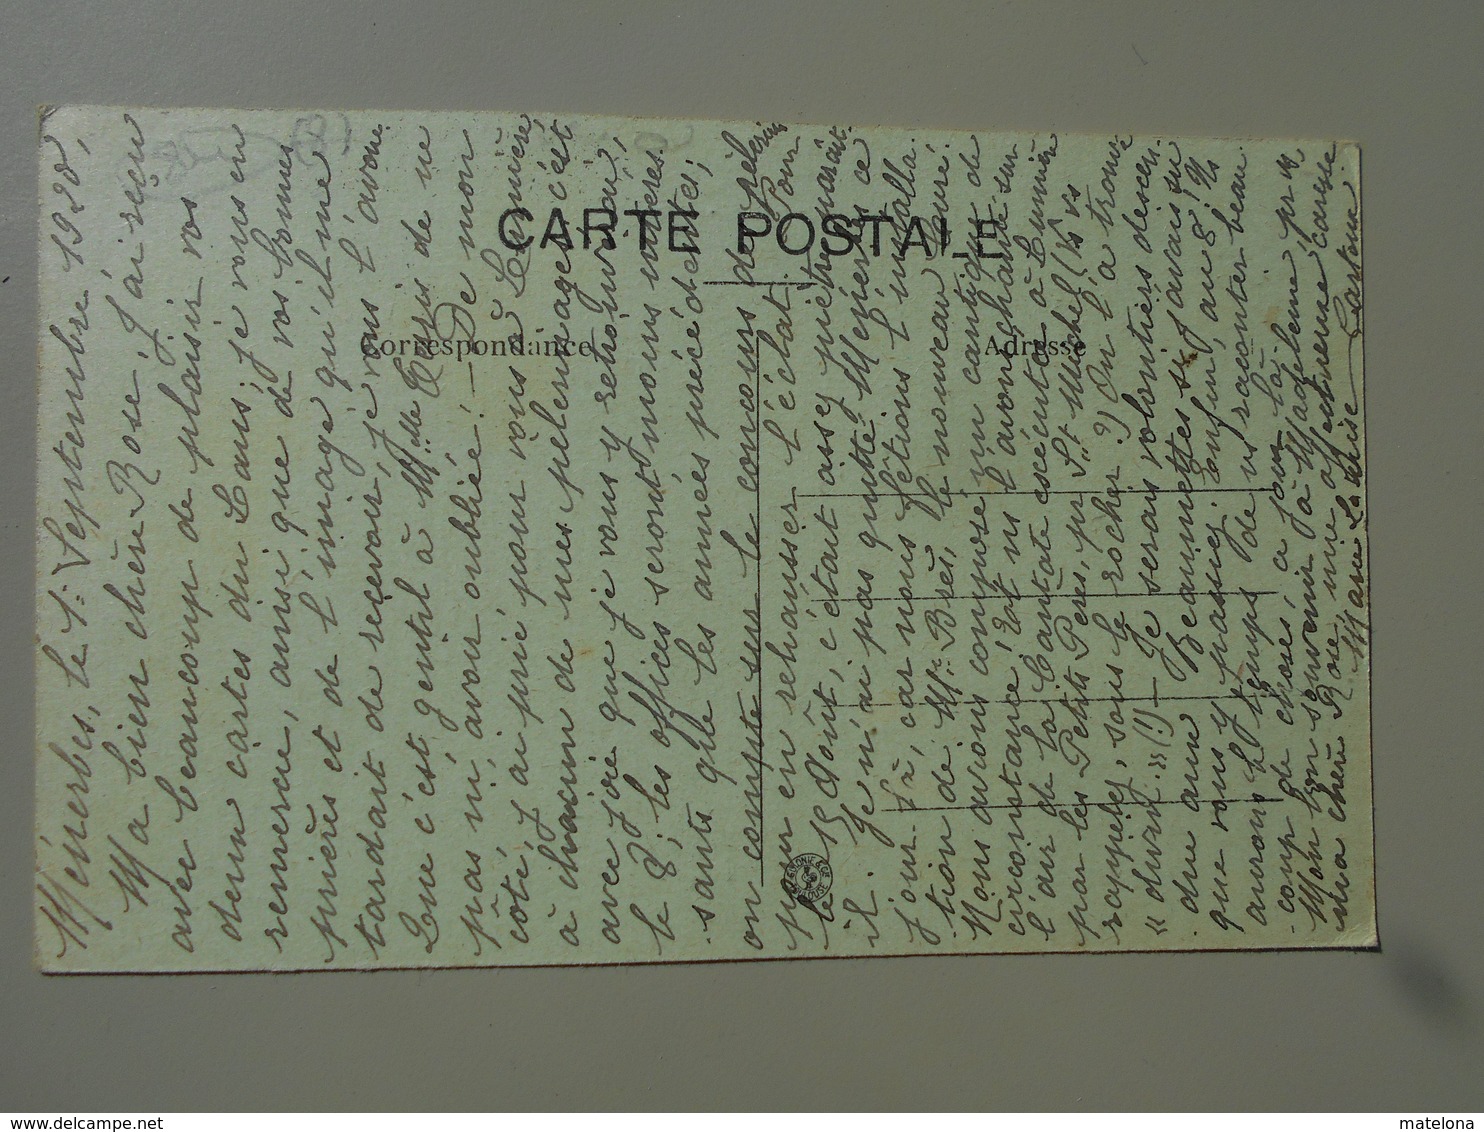 CARTE POSTALE
Correspondance
Adresse
Ménerbes, le 1er Septembre 1920,
Ma bien chère Rose, J'ai reçu
avec beaucoup de plaisir vos
deux cartes du je vous en
remercie, ainsi que de vos bonnes
prières et de l'image qu'il me
tardait de recevoir, je vous l'avoue
Que c'est gentil à Melle de ne
pas m'avoir oubliée! — De mon
coté, j'ai prié pour vous à Lumière
à chacun de mes pélerinages, c'est
avec joie que je vous y retrouverai,
le 8; les offices seront moins intéres
sants que les années précédentes;
on compte sur le concours de
pour en rehausser l'éclat. Pour
le 15 Août, c'était assez piètre paraît-
il. Je n'ai pas quitté Ménerbes ce
jour-là, car nous fêtions l'installa-
tion de Mr. Brès, le nouveau curé.
Nous avions composé un cantique de
circonstance, et ns l'avons chanté sur
l'air de la Cantate exécutée à Lumière
par les Petits Pères, pr St Michel (ns ns
rappelez, sous le rocher?) On l'a trouvé
« » (!) — Je serais volontiers descen-
due aux Beaumettes si j'avais su
que vous y passiez. Enfin, au 8 Ns
aurons le temps de ns raconter beau-
coup de choses, à ce jour-là.
Mon bon souvenir à Madeleine, pr
ma chère Rose, une affectueuse caresse
Marie Louise